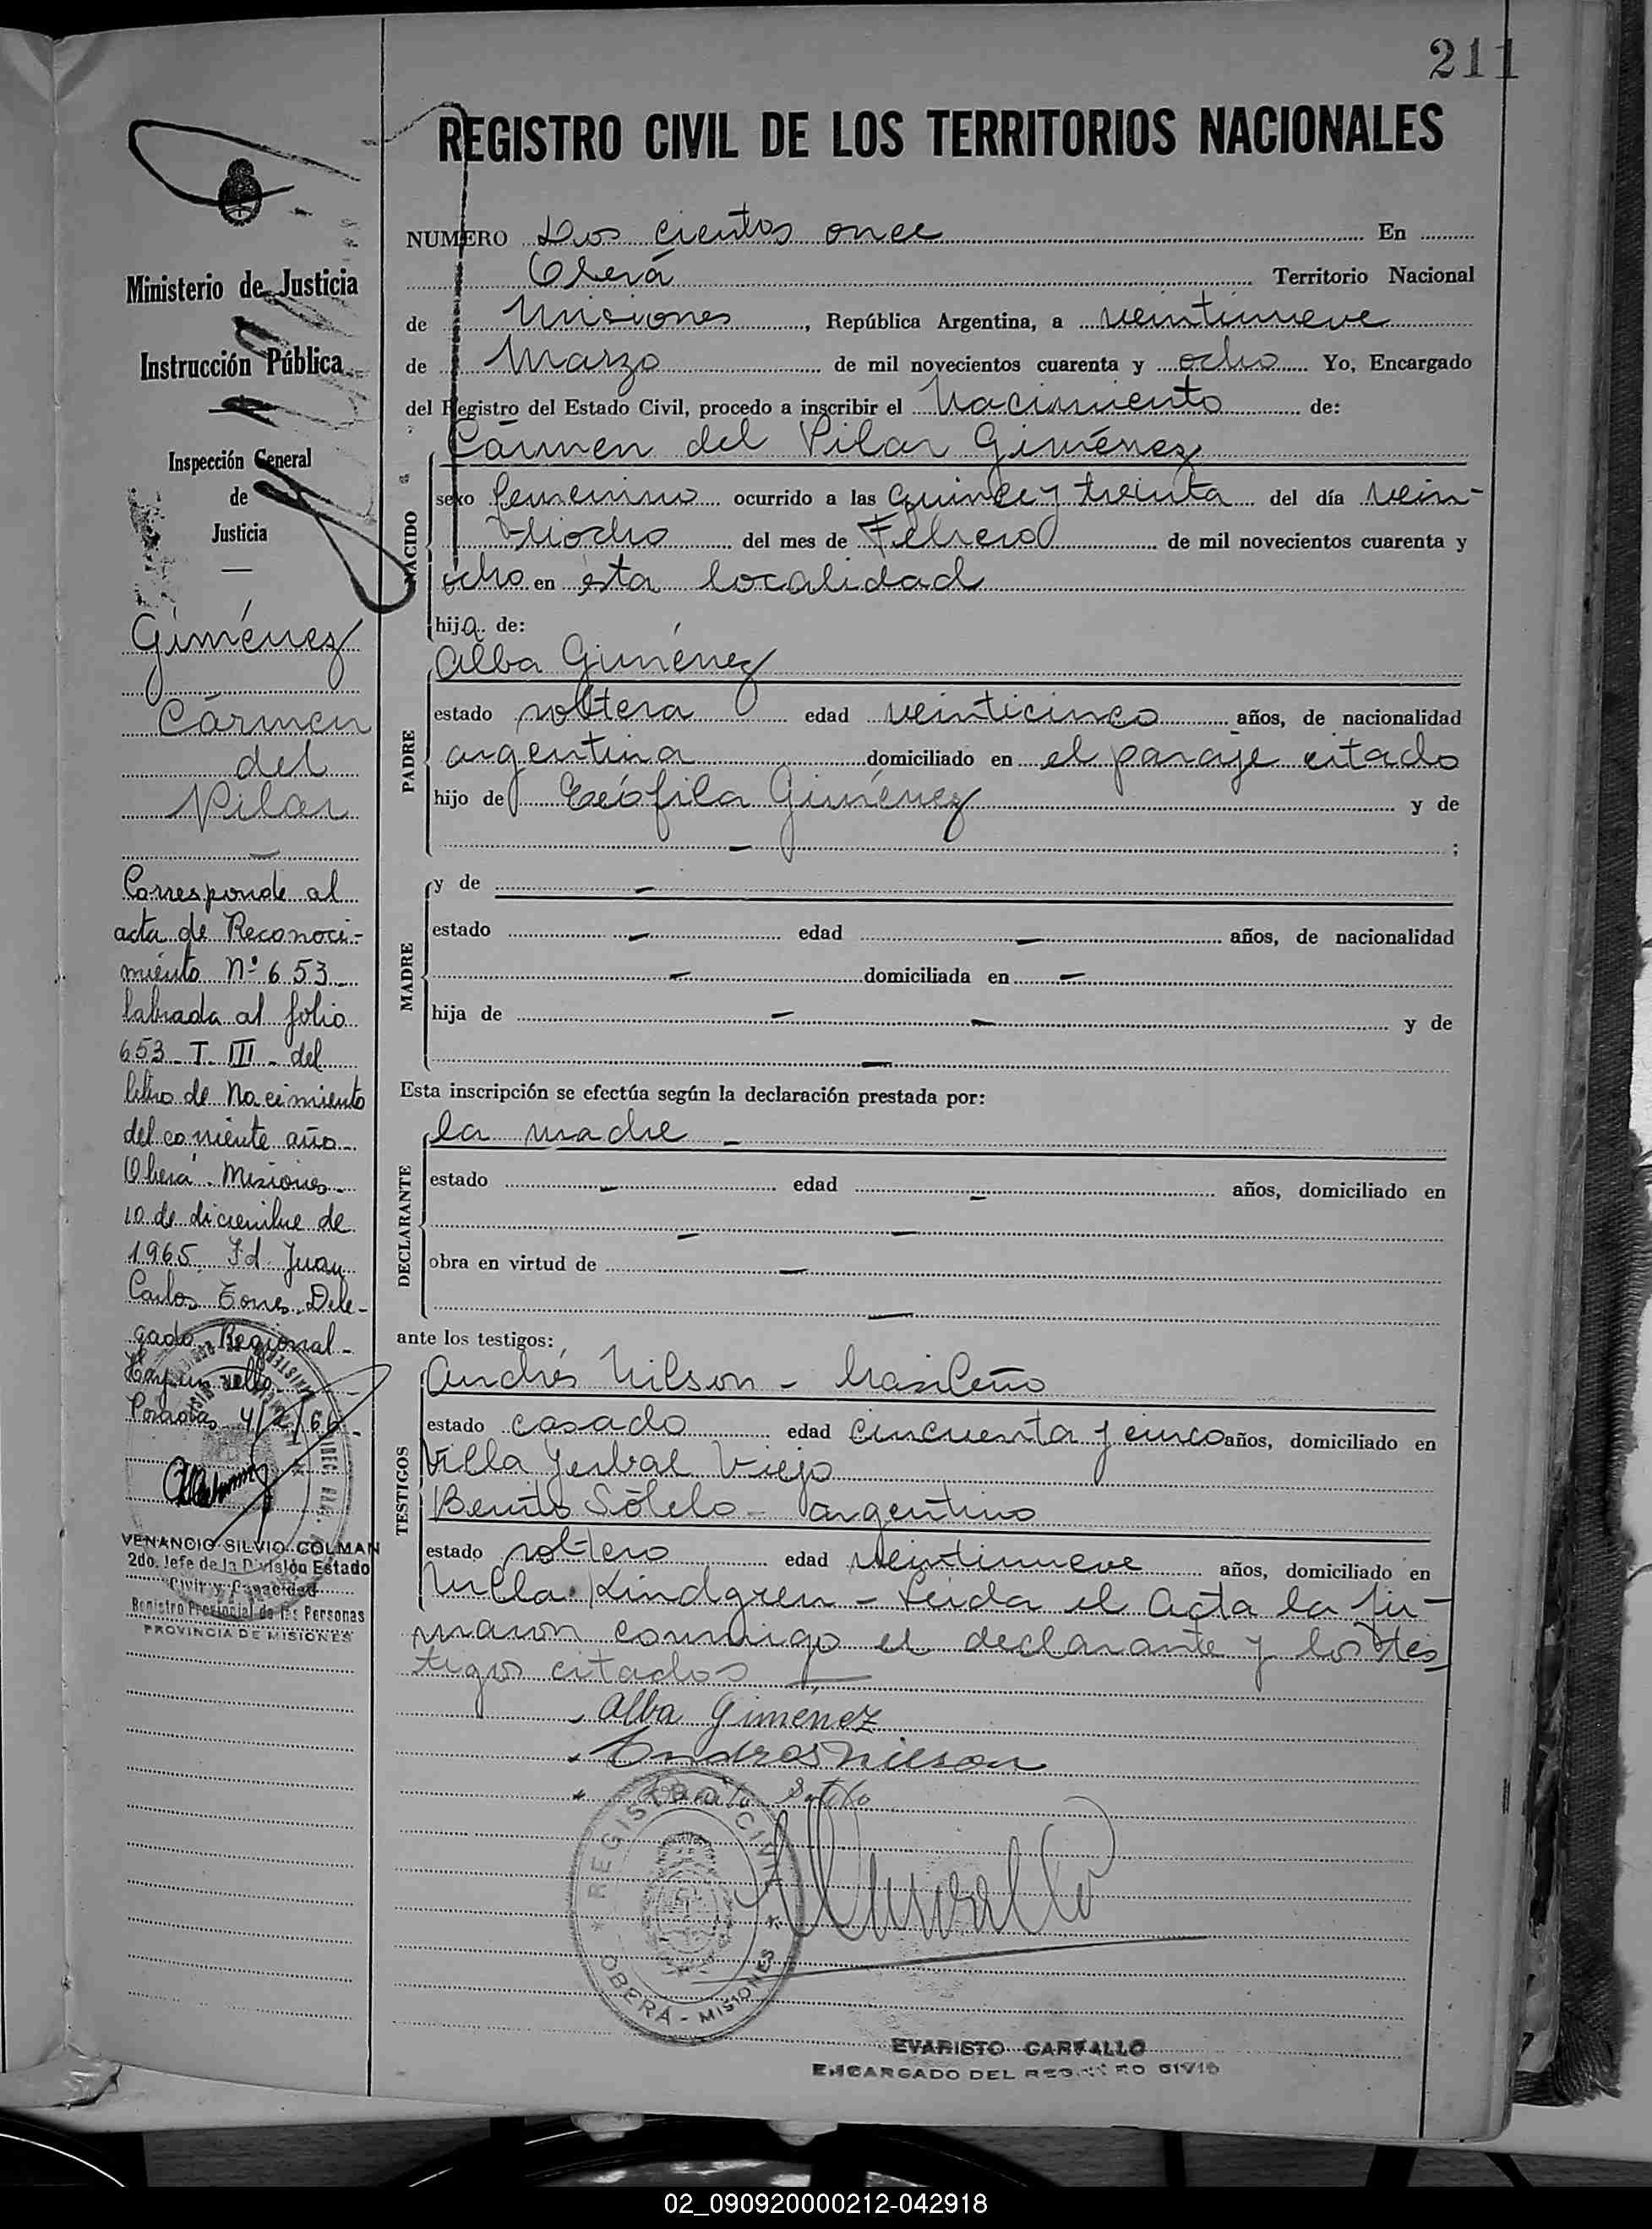 211
REGISTRO CIVIL DE LOS TERRITORIOS NACIONALES
NUMERO Dos cientos once En
Oberá Territorio Nacional
de Misiones, República Argentina, a veintinueve
de Marzo de mil novecientos cuarenta y ocho Yo, Encargado
del Registro del Estado Civil, procedo a inscribir el Nacimiento de:
NACIDO
Cármen del Pilar Giménez
sexo femenino ocurrido a las quince y treinta del día vein-
tiocho del mes de Febrero de mil novecientos cuarenta y
ocho en ésta localidad
hija de:
PADRE
Alba Giménez
estado soltera edad veinticinco años, de nacionalidad
argentina domiciliado en el paraje citado
hijo de Teófila Giménez y de
- ;
MADRE
y de -
estado - edad - años, de nacionalidad
- domiciliada en -
hija de - - y de
-
Esta inscripción se efectúa según la declaración prestada por:
DECLARANTE
la madre -
estado - edad - años, domiciliado en
- -
obra en virtud de -
-
ante los testigos:
TESTIGOS
Andrés Nilson - brasileño
estado casado edad cincuenta y cinco años, domiciliado en
Villa Yerbal Viejo
Benito Sótelo - argentino
estado soltero edad veintinueve años, domiciliado en
Villa Lindgren - Leída el Acta la fir-
maron conmigo el declarante y los tes-
tigos citados
Alba Gimenez
Andres Nilson
Benito Sotelo
REGISTRO CIVIL
OBERA - MISIONES
EVARISTO CARVALLO
ENCARGADO DEL REGISTRO CIVIL
Ministerio de Justicia
e
Instrucción Pública
Inspección General
de
Justicia
Giménez
Cármen
del
Pilar
Corresponde al
acta de Reconoci-
miento Nº 653
labrada al folio
653 T. III - del
libro de Nacimiento
del corriente año.
Oberá. Misiones.
10 de diciembre de
1965. Fd. Juan
Carlos Torres. Dele-
gado Regional -
Hay un sello
Posadas 4/2/66
VENANCIO SILVIO COLMAN
2do. Jefe de la División Estado
Civil y Capacidad
Registro Provincial de las Personas
PROVINCIA DE MISIONES
02_090920000212-042918